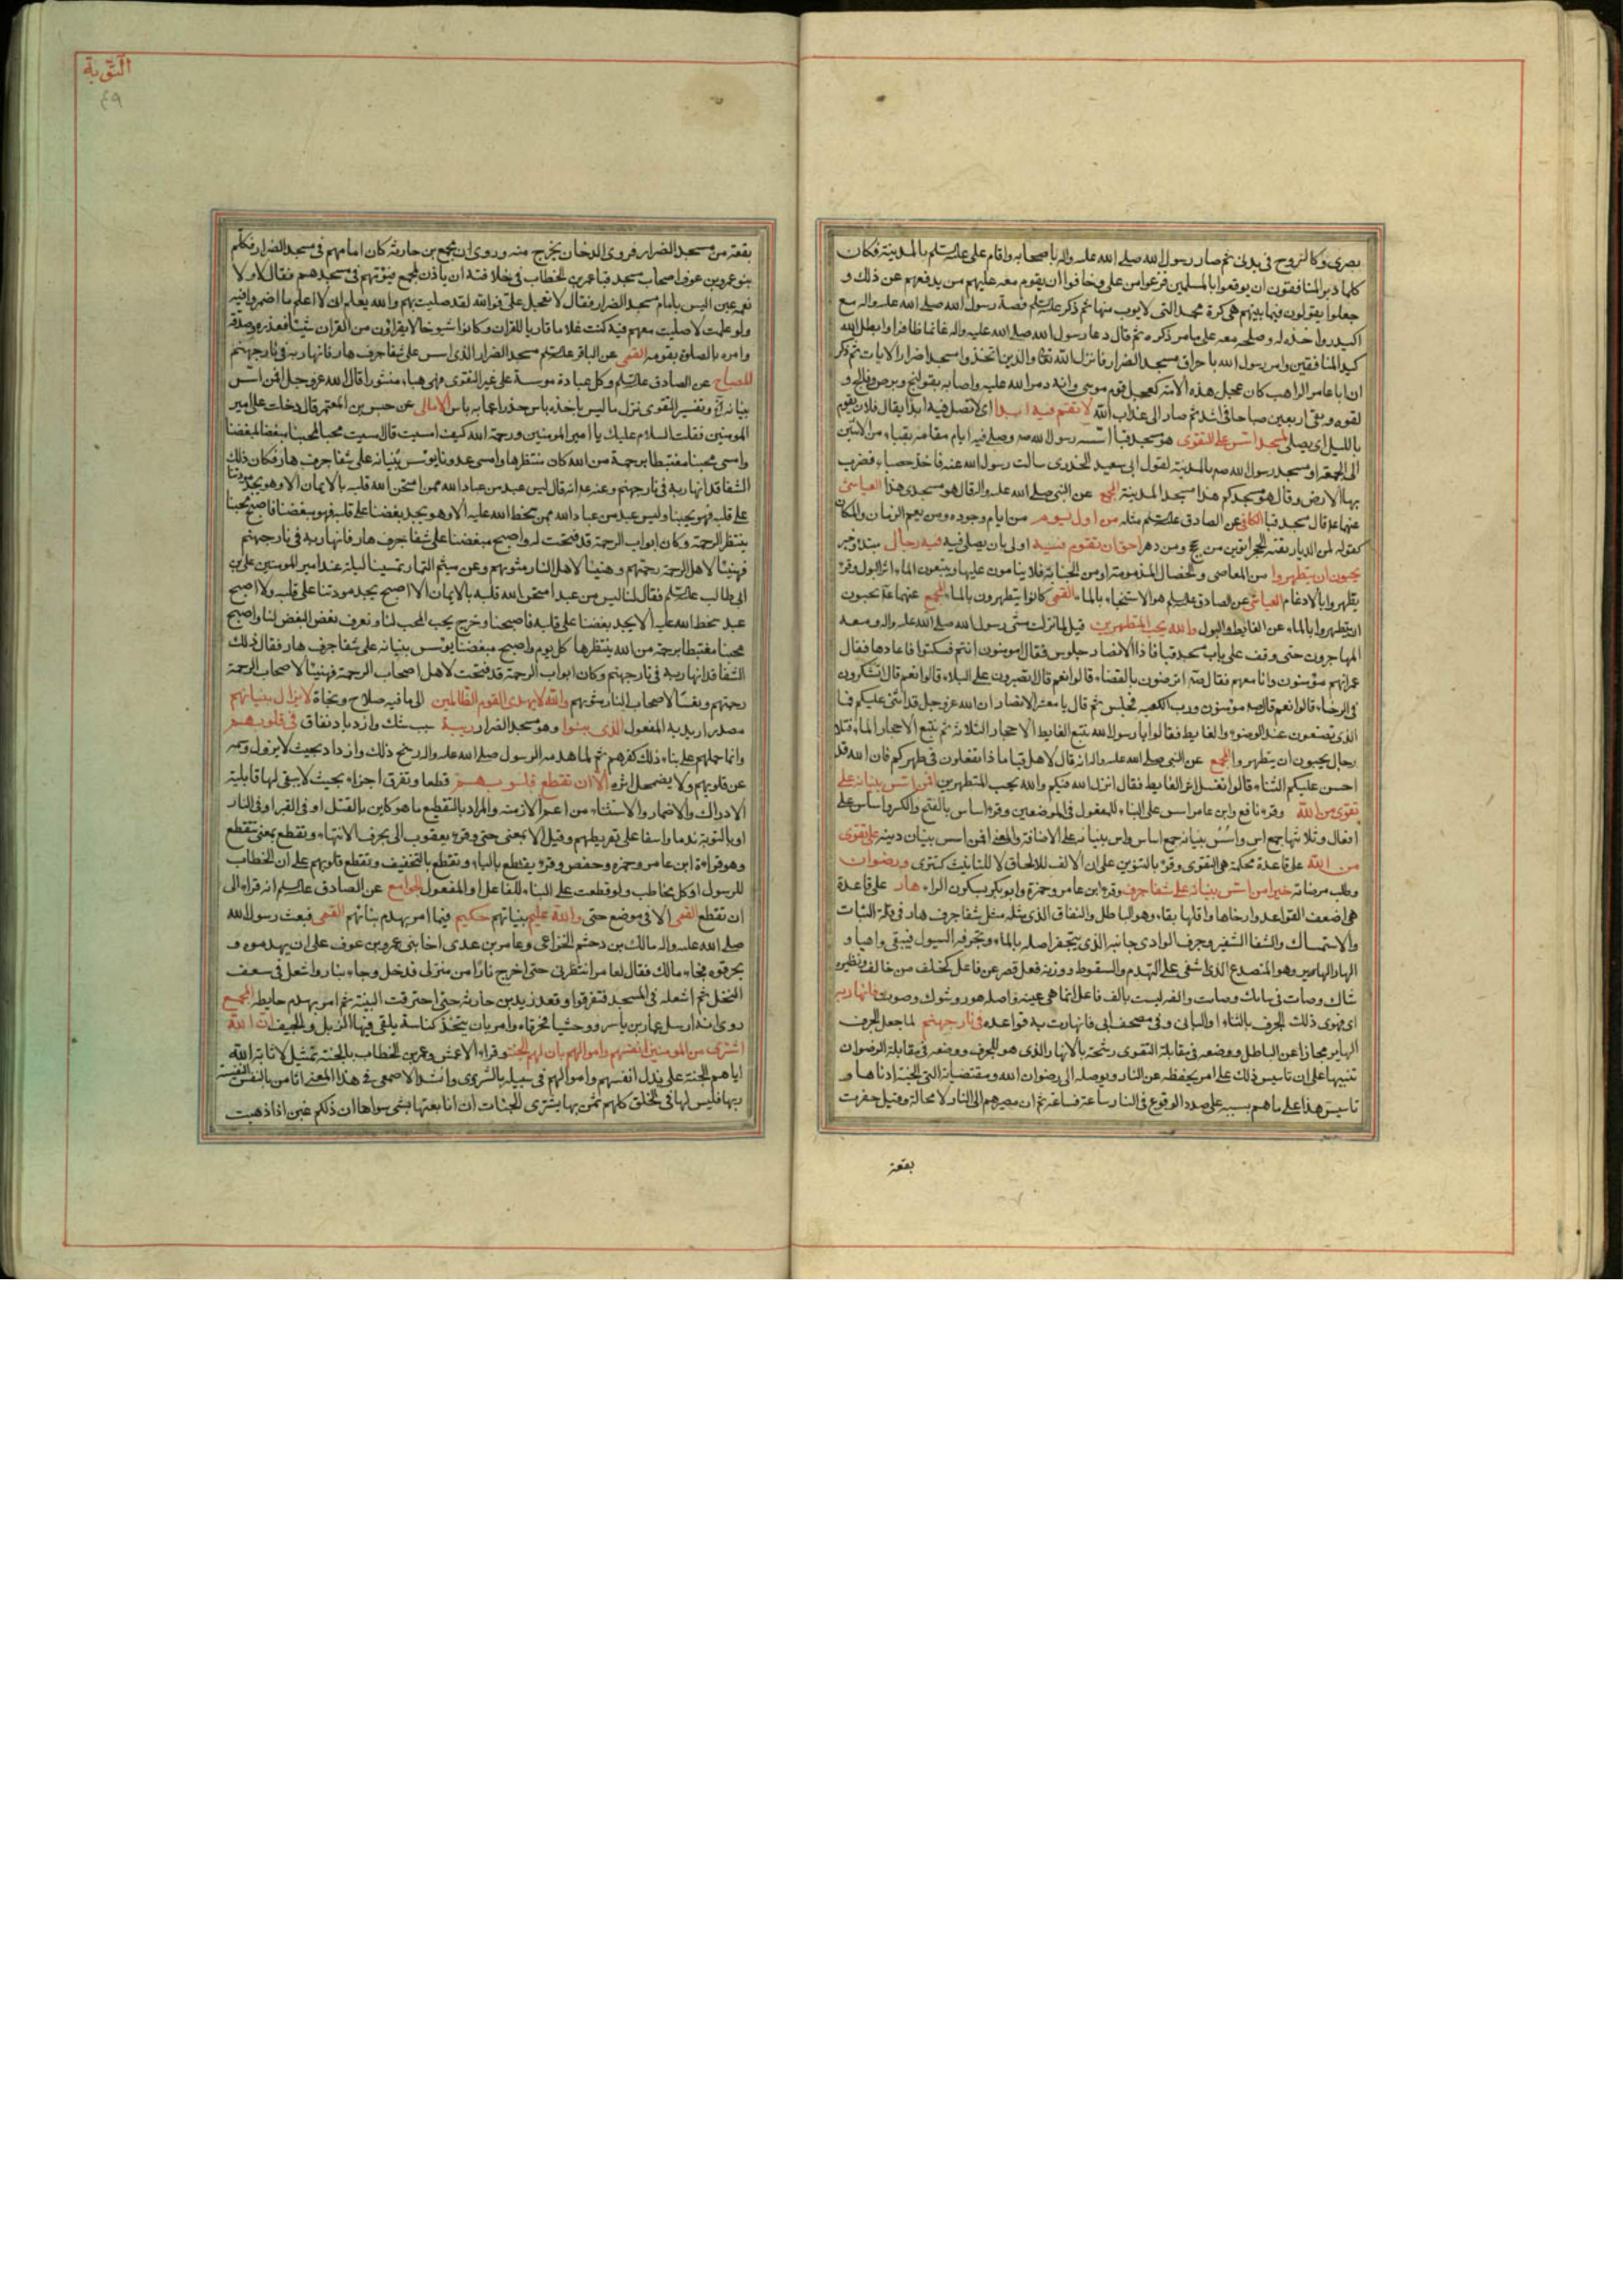 بصری وکالروح فی بدنی ثم صار رسول الله صلی الله علیه واله باصحابه واقام علی علیه السلم بالمدینة فکان
کلما دبر المنافقون ان یوقعوا بالمسلمین فزعوا من علی وخافوا ان یقوم معه علیهم من یدفعهم عن ذلك و
جعلوا یقولون فیما بینهم هی کرة محمد التی لا یوب منها ثم ذکر علیه السلم قصة رسول الله صلی الله علیه واله مع
اکیدر واخذه له وصلحه معه علی ما مر ذکره ثم قال وعاد رسول الله صلی الله علیه واله غانما ظافرا وابطل الله
کید المنافقین وامر رسول الله باحراق مسجد الضرار فانزل الله تعا والذین اتخذوا مسجدا ضرارا الایات ثم ذکر
ان ابا عامر الراهب کان عجل هذه الامة کعجل قوم موسی وانه دمر الله علیه واصابه بقولنج وبرص وفالج و
لقوة وبقی اربعین صباحا فی اشد ثم صار الی عذاب الله لا تقم فیه ابدا ای لا تصل فیه ابدا یقال فلان یقوم
باللیل ای یصلی لمسجد اسس علی التقوی هو مسجد قبا اسسه رسول الله صم وصلی فیه ایام مقامه بقباء من الاثنین
الی الجمعة او مسجد رسول الله صم بالمدینة لقول ابی سعید الخدری سالت رسول الله عنه فاخذ حصباء فضرب
بها الارض وقال هو مسجدکم هذا مسجد المدینة المجمع عن النبی صلی الله علیه واله قال هو مسجدی هذا العیاشی
عنهما ع قال مسجد قبا الکافی عن الصادق علیه السلم مثله من اول یوم من ایام وجوده ومن یعم الزمان والمکان
کقوله لمن الدیار بقنة الحجر اقوین من حجج ومن دهر احق ان تقوم فیه اولی بان یصلی فیه فیه رجال
یحبون ان یتطهروا من المعاصی والخصال المذمومة او من الجنابة فلا ینامون علیها ویتبعون الماء اثر البول وقرء
یطهروا بالادغام العیاشی عن الصادق علیه السلم هو الاستنجاء بالماء القمی کانوا یتطهرون بالماء المجمع عنهما ع یحبون
ان یتطهروا بالماء عن الغایط والبول والله یحب المتطهرین قیل لما نزلت مشی رسول الله صلی الله علیه واله ومعه
المهاجرون حتی وقف علی باب مسجد قبا فاذا الانصار جلوس فقال امومنون انتم فسکتوا فاعادها فقال
عمر انهم مومنون وانا معهم فقال صم اترضون بالقضاء قالوا نعم قال تصبرون علی البلاء قالوا نعم قال اتشکرون
فی الرخاء قالوا نعم قال صم مومنون ورب الکعبه فجلس ثم قال یا معشر الانصار ان الله عز وجل قد اثنی علیکم فما
الذی تصنعون عند الوضوء والغایط فقالوا یا رسول الله نتبع الغایط الاحجار الثلاثة ثم نتبع الاحجار الماء فتلا
رجال یحبون ان یتطهروا المجمع عن النبی صلی الله علیه واله انه قال لاهل قبا ما ذا تفعلون فی طهرکم فان الله قد
احسن علیکم الثناء قالوا نغسل اثر الغایط فقال انزل الله فیکم والله یحب المتطهرین افمن اسس بنیانه علی
تقوی من الله وقرء نافع وابن عامر اسس علی البناء للمفعول فی الموضعین وقرء اساس بالفتح والکسر واساس علی
افعال وثلاثتها جمع اس واسس بنیانه جمع اساس واس بنیانه علی الاضافة والمعنی افمن اسس بنیان دینه علی تقوی
من الله علی قاعدة محکمة هی التقوی وقرء بالتنوین علی ان الالف للالحاق لا للتانیث کتتری ورضوان
وطلب مرضاته خیر ام من اسس بنیانه علی شفا جرف وقرء ابن عامر وحمزة وابو بکر بسکون الراء هار علی قاعدة
هی اضعف القواعد وارخاها واقلها بقاء وهو الباطل والنفاق الذی مثله مثل شفا جرف هار فی قلة الثبات
والاستمساك والشفا الشفیر وجرف الوادی جانبه الذی یتحفر اصله بالماء وتجرفه السیول فیبقی واهیا و
الهار الهایر وهو المتصدع الذی اشفی علی التهدم والسقوط ووزنه فعل قصر عن فاعل کخلف من خالف ونظیره
شاك وصات فی شایك وصایت والفه لیست بالف فاعل انما هی عینه واصله هور وشوك وصوت فانهار به
ای فهوی ذلك الجرف بالبناء او البانی وفی مصحف ابی فانهارت به قواعده فی نار جهنم لما جعل الجرف
الهایر مجازا عن الباطل ووضعه فی مقابلة التقوی رشحه بالانهیار الذی هو للجرف ووضعه فی مقابلة الرضوان
تنبیها علی ان تاسیس ذلك علی امر یحفظه عن النار ویوصله الی رضوان الله ومقتضیاته التی الجنة ادناها و
تاسیس هذا علی ما هم بسببه علی صدد الوقوع فی النار ساعة فساعة ثم ان مصیرهم الی النار لا محالة وقیل حفرت
بقعة
التّوبة
٤٩
بقعة من مسجد الضرار فروی الدخان یخرج منه وروی ان مجمع بن حارثة کان امامهم فی مسجد الضرار فکلم
بنو عمرو بن عوف اصحاب مسجد قبا عمر بن الخطاب فی خلافته ان یاذن لمجمع فیؤمهم فی مسجدهم فقال لا ولا
نعمة عین الیس بامام مسجد الضرار فقال لا تعجل علی فوالله لقد صلیت بهم والله یعلم ان لا اعلم ما اضمروا فیه
ولو علمت لا صلیت معهم فیه کنت غلاما قاریا للقران وکانوا شیوخا لا یقراؤن من القران شیئا فعذره وصدقه
وامره بالصلوة بقومه القمی عن الباقر علیه السلم مسجد الضرار الذی اسس علی شفا جرف هار فانهار به فی نار جهنم
المصباح عن الصادق علیه السلم وکل عبادة موسسة علی غیر التقوی فهی هباء منثورا قال الله عز وجل افمن اسس
بنیانه الآیة وتفسیر التقوی نزل ما لیس باخذه باس حذرا عما به باس الامالی عن حبیس بن المعتمر قال دخلت علی امیر
المومنین فقلت السلام علیك یا امیر المومنین ورحمة الله کیف امسیت قال امسیت محبا لمحبنا مبغضا لمبغضنا
وامسی محبنا مغتبطا برحمة من الله کان منتظرها وامسی عدونا یؤسس بنیانه علی شفا جرف هار فکان ذلك
الشفا قد انهار به فی نار جهنم وعنه ع انه قال لیس عبد من عباد الله ممن امتحن الله قلبه بالایمان الا وهو یجد مودتنا
علی قلبه فهو یحبنا ولیس عبد من عباد الله ممن سخط الله علیه الا وهو یجد بغضنا علی قلبه فهو یبغضنا فاصبح محبنا
ینتظر الرحمة وکان ابواب الرحمة قد فتحت له واصبح مبغضنا علی شفا جرف هار فانهار به فی نار جهنم
فهنیئا لاهل الرحمة رحمتهم وهنیئا لاهل النار مثویهم وعن میثم التمار تمسینا لیلة عند امیر المومنین علی بن
ابی طالب علیه السلم فقال لنا لیس من عبد امتحن الله قلبه بالایمان الا اصبح یجد مودتنا علی قلبه ولا اصبح
عبد سخط الله علیه الا یجد بغضنا علی قلبه فاصبحنا وخرج یحب المحب لنا ونعرف بغض المبغض لنا واصبح
محبنا مغتبطا برحمة من الله ینتظرها کل یوم واصبح مبغضنا یؤسس بنیانه علی شفا جرف هار فقال فذلك
الشفا قد انهار به فی نار جهنم وکان ابواب الرحمة قد فتحت لاهل اصحاب الرحمة فهنیئا لاصحاب الرحمة
رحمتهم وتعسا لاصحاب النار مثویهم والله لا یهدی القوم الظالمین الی ما فیه صلاح ونجاة لا یزال بنیانهم
مصدر ارید به المفعول الذی بنوا وهو مسجد الضرار ریبة سبب شك وازدیاد نفاق فی قلوبهم
وانما حملهم علی بناء ذلك کفرهم ثم لما هدمه الرسول صلی الله علیه واله رسخ ذلك وازداد بحیث لا یزول وسمه
عن قلوبهم ولا یضمحل اثره الا ان تقطع قلوبهم قطعا وتفرق اجزاء بحیث لا یبقی لها قابلیة
الادراك والاضمار والاستثناء من اعم الازمنة والمراد بالتقطیع ما هو کاین بالقتل او فی القبر او فی النار
او بالتوبة ندما واسفا علی تفریطهم وقیل الا بمعنی حتی وقرء یعقوب الی بحرف الانتهاء وتقطع بمعنی تتقطع
وهو قراءة ابن عامر وحمزه وحفص وقرء یقطع بالیاء وتقطع بالتخفیف وتقطع قلوبهم علی ان الخطاب
للرسول او کل مخاطب ولو قطعت علی البناء للفاعل او المفعول الجوامع عن الصادق علیه السلم انه قراء الی
ان تقطع القمی الا فی موضع حتی والله علیم ببنیاتهم حکیم فیما امر بهدم بنائهم القمی فبعث رسول الله
صلی الله علیه واله مالك بن دخشم الخزاعی وعامر بن عدی اخا بنی عمرو بن عوف علی ان یهدموه و
یحرقوه فجاء مالك فقال لعامر انتظرنی حتی اخرج نارا من منزلی فدخل وجاء بنار واشعل فی سعف
النخل ثم اشعله فی المسجد فتفرقوا وقعد زید بن حارثة حتی احترقت البنیة ثم امر بهدم حایطه المجمع
روی انه ارسل عمار بن یاسر ووحشیا فحرقاه وامر بان یتخذ کناسة یلقی فیها الزبل والجیف ان الله
اشتری من المومنین انفسهم واموالهم بان لهم الجنة وقراء الاعمش وعمر بن الخطاب بالجنة تمثیل لاثابة الله
ایاهم الجنة علی بذل انفسهم واموالهم فی سبیله بالشری وانشد الاصمعی فی هذا المعنی اثامن بالنفس النفیسة
ربها فلیس لها فی الخلق کلهم ثمن بها یشتری الجنات ان انا بعتها بشی سواها ان ذلکم غبن اذا ذهبت